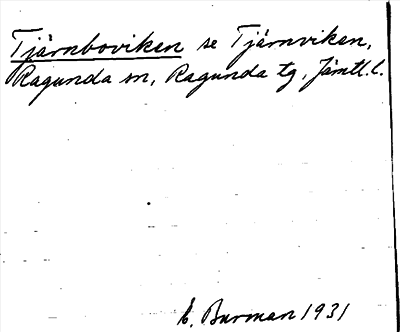 Tjärnboviken se Tjärnviken,
Ragunda sn, Ragunda tg, Jämtl. l.
E. Burman 1931